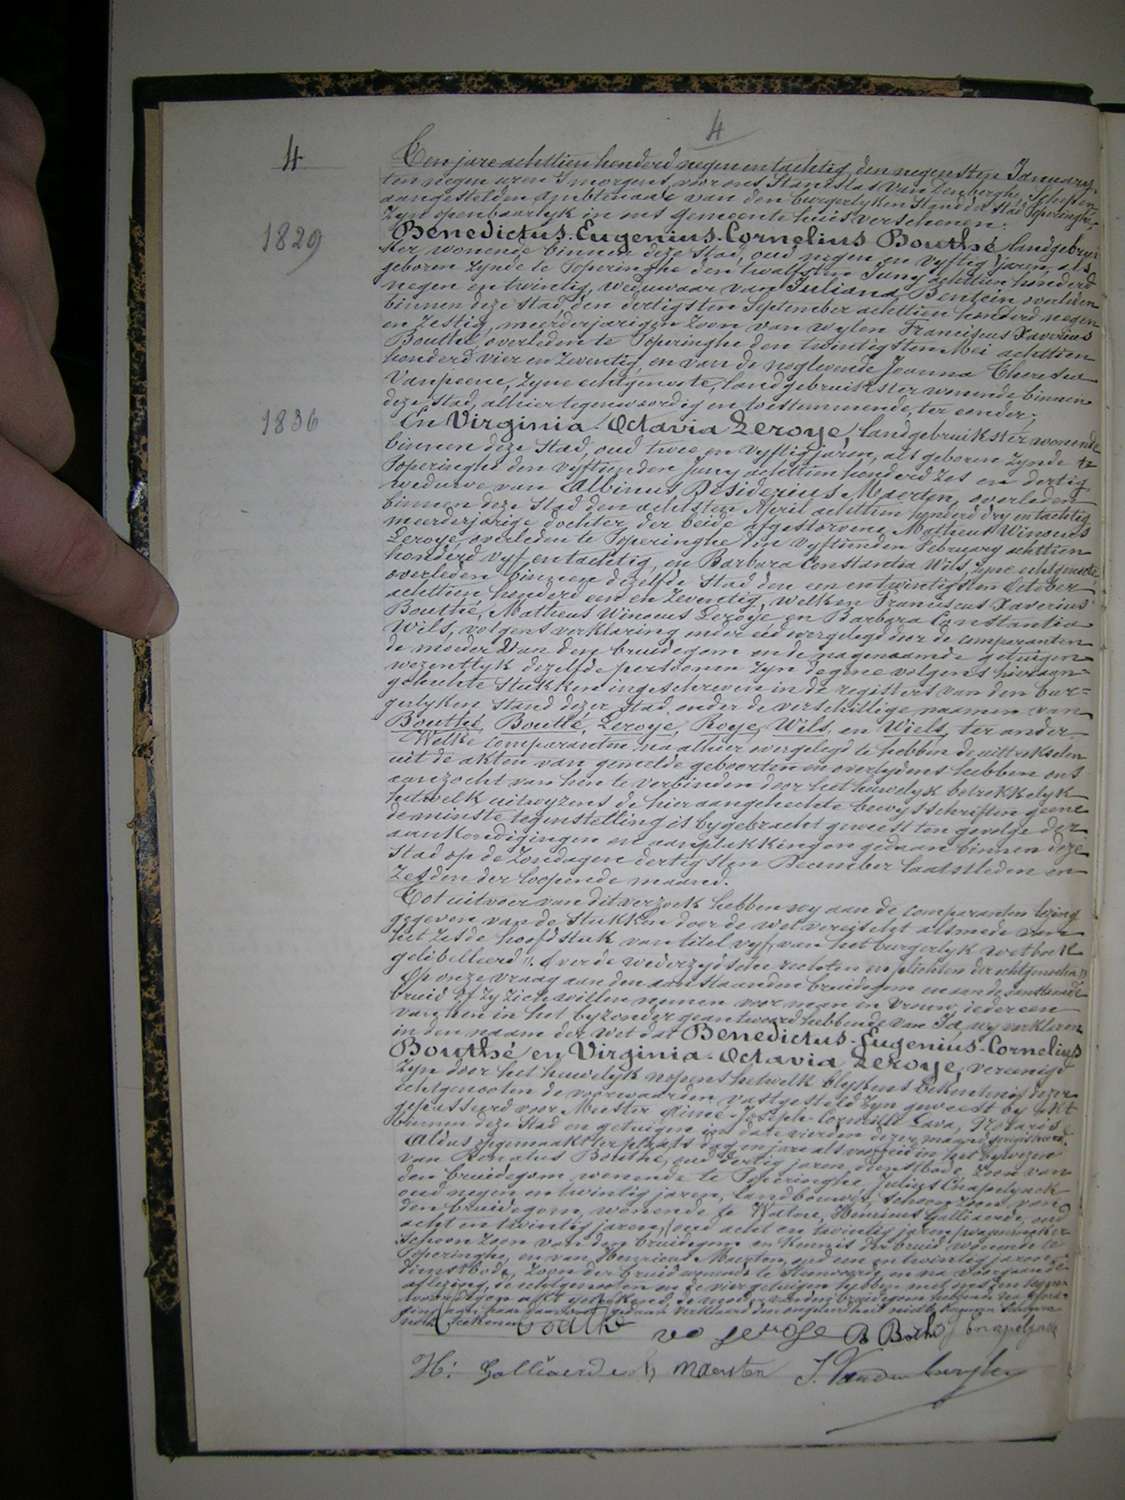 4
4
Ten jare achttien honderd negen en tachtig, den negensten January,
ten negen uren 's morgens, voor ons Stanislas Van Denberghe, Schepen
aangestelden Ambtenaar van den burgerlyken Stand der Stad Poperinghe,
zyn openbaarlyk in ons gemeente huis verschenen:
1829
Benedictus-Eugenius-Cornelius Bouthé, landgebrui-
ker, wonende binnen deze Stad, oud negen en vyftig jaren, als
geboren zynde te Poperinghe den twalfsten Juny achttien honderd
negen en twintig, weduwaar van Juliana Bentein, overleden
binnen deze Stad, den dertigsten September achttien honderd negen
en zestig, meerderjarigen Zoon van wylen Franciscus Xaverius
Bouthé, overleden te Poperinghe den twintigsten Mei achttien
honderd vier en zeventig, en van de noglevende Joanna Theresia
Vanpeene, zyne echtgenoote, landgebruikster wonende binnen
deze Stad, alhier tegenwoordig en toestemmende, ter eender;
1836
En Virginia-Octavia Leroye, landgebruikster wonende
binnen deze Stad, oud twee en vyftig jaren, als geboren zynde te
Poperinghe den vyftienden Juny achttien honderd zes en dertig,
weduwe van Albinus Desiderius Maerten, overleden
binnen deze Stad den achtsten April achttien honderd dry en tachtig,
meerderjarige dochter der beide afgestorvene Matheus Winocus
Leroye, overleden te Poperinghe den vyftienden February achttien
honderd vyf en tachtig, en Barbara Constantia Wils, zyne echtgenoote,
overleden binnen dezelfde Stad den een en twintigsten October
achttien honderd een en zeventig, welken Franciscus Xaverius
Bouthé, Matheus Winocus Leroye, en Barbara Constantia
Wils, volgens verklaring onder eed overgelegd door de comparanten
de moeder van den bruidegom en de nagenaamde getuigen
wezentlyk dezelfde persoonen zyn degene volgens hieraan-
gehechte Stukken ingeschreven in de registers van den bur-
gerlyken Stand dezer Stad, onder de verschillige naamen van
Bouthé, Boutté, Leroye, Roye, Wils, en Wiels, ter ander.
Welke comparanten, na alhier overgelegd te hebben de uittreksels
uit de akten van gemelde geboorten en overlydens hebben ons
aanzocht van hen te verbinden door het huwelyk betrekkelyk
hetwelk uitwyzens de hieraangehechte bewysschriften geene
de minste tegenstelling is bygebracht geweest ten gevolge der
aankondigingen en aanplakkingen gedaan binnen deze
Stad op de Zondagen dertigsten December laatstleden en
Zesden der loopende maand.
Tot uitvoer van dit verzoek hebben wy aan de comparanten lezing
gegeven van de Stukken door de wet vereischt alsmede van
het zesde hoofdstuk van titel vyf, van het burgerlyk wetboek
gelibelleerd: "Over de wederzydsche rechten en plichten der echtgenooten."
Op onze vraag aan den aanstaanden bruidegom en aan de aanstaande
bruid of zy zich willen nemen voor man en vrouw, ieder een
van hen in het byzonder geantwoord hebbende van Ja, wy verklaren
in den naam der wet dat Benedictus-Eugenius-Cornelius
Bouthé en Virginia-Octavia Leroye, vereenigd
zyn door het huwelyk nopens hetwelk blykens bekentenis dezer
echtgenooten de voorwaarden vastgesteld zyn geweest by akt
gepasseerd voor Meester Aimé-Joseph-Corneille Lava, Notaris
binnen deze Stad en getuigen in date vierden dezer maand
Aldus opgemaakt ter plaats dag en jare als voorzeid in het bywezen
van Renatus Bouthé, oud dertig jaren, dienstbode, Zoon van
den bruidegom, wonende te Poperinghe, Julius Chapelynck
oud negen en twintig jaren, landbouwer, Schoonzoon van
den bruidegom, wonende te Watou, Henricus Galliaerde, oud
acht en twintig jaren,
Schoonzoon van den bruidegom en kennis der bruid wonende te
Poperinghe, en van Henricus Maerten, oud een en twintig jaren,
dienstbode, Zoon der bruid wonende te en na voorgaande
aflezing, de echtgenooten en de vier getuigen hebben met ons den
Bouthe vo leroye B Bothe J Chapelynck
H: Galliaerde H maerten S. Vandenberghe